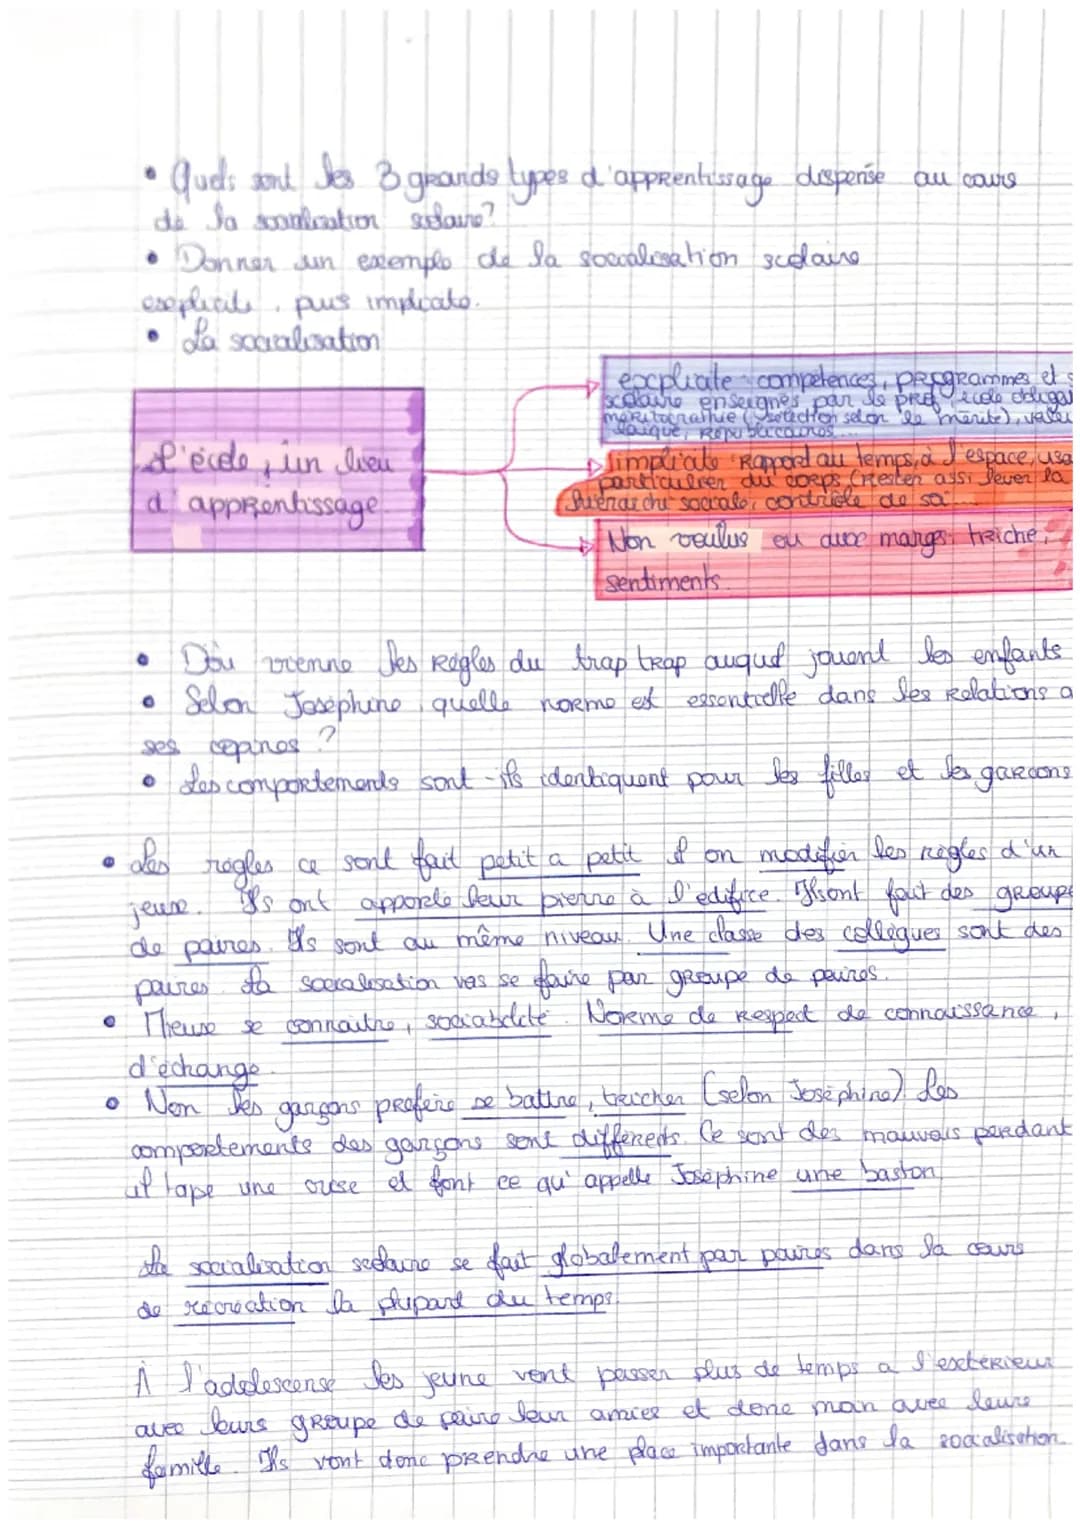 • Quels sont les 3 grands types d'apprentissage dispensé au cours
de la socialisation scolaire?
• Donner un exemple de la socialisation scolaire
explicite, puis implicate.
• La socialisation
L'école, un lieu
d'apprentissage
explicite compétences, programmes et s
scolaire enseignés par le prof, école obligat
méritocrathie (sélection selon le mérite), valeu
laïque, Républicaines...
implicate Rapport au temps, à l'espace, usa
particulier du corps (rester assi lever la
hiérarchi sociale, contrôle de sa...
Non voulus ou aux marges triche,
sentiments.
• D'où vienne les règles du trap trap auquel jouent les enfants
• Selon Joséphine, quelle norme est essentielle dans les relations a
ses copines ?
• Les comportements sont-ils identiquent pour les filles et les garçons
• Les règles ce sont fait petit a petit il on modifier les règles d'un
jeux. Ils ont apporté leur pierre à l'édifice. Ils ont fait des groupe
de paires. Ils sont au même niveau. Une classe des collègues sont des
paires. La socialisation vas se faire par groupe de paires.
• Mieux se connaitre, sociabilité. Norme de respect de connaissance,
d'échange.
• Non les garçons préfère se battre, tricher (selon Joséphine). Les
comportements des garçons sont différents. Ce sont des mauvais perdant
il tape une crise et font ce qu'appelle Joséphine une baston.
La socialisation scolaire se fait globalement par paires dans la cours
de récréation la plupart du temps.
À l'adolescense les jeune vont passer plus de temps a l'extérieur
avec leurs groupe de paire leur amies et donc moin avec leurs
famille. Ils vont donc prendre une place importante dans la socialisation.